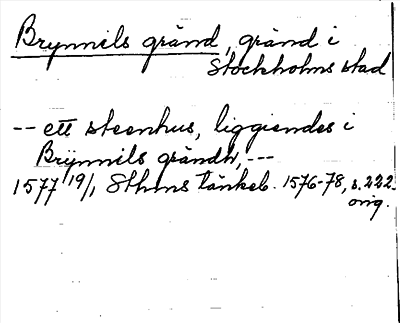 Brynnils gränd, gränd i
Stockholms stad
-- ett steenhus, liggiendes i
Brÿnnils grändh, ---
1577 19/1 Sthms tänkeb. 1576-78, s. 222.
orig.